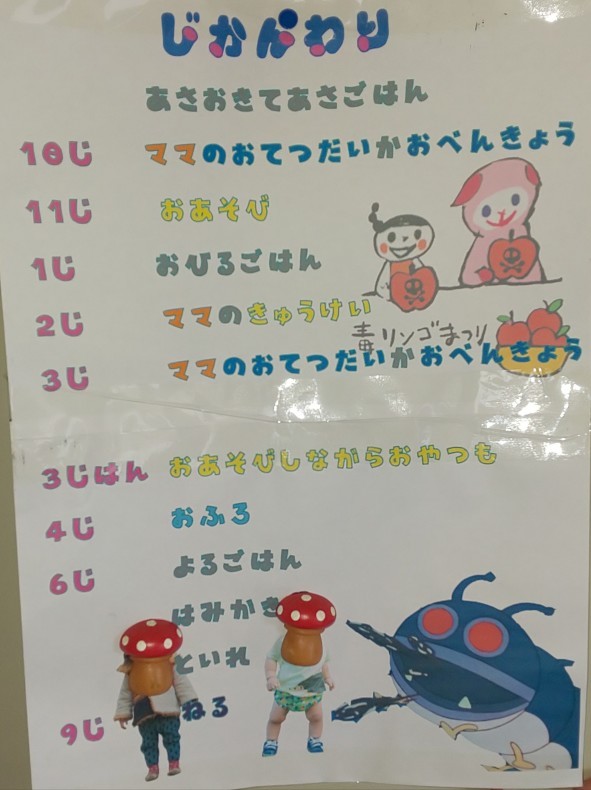 じかんわり
あさおきてあさごはん
10じ ママのおてつだいかおべんきょう
11じ おあそび
1じ おひるごはん
2じ ママのきゅうけい
毒リンゴまつり
3じ ママのおてつだいかおべんきょう
3じはん おあそびしながらおやつも
4じ おふろ
6じ よるごはん
はみがき
といれ
9じ ねる